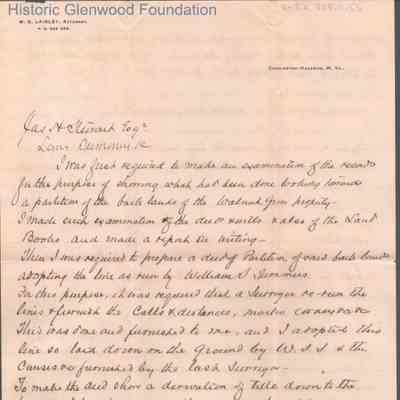 Historic Glenwood Foundation
W. S. LAIDLEY, ATTORNEY.
CHARLESTON-KANAWHA, W. VA.
Jas H Stewart Esqr
I was first required to make an examination of the records
for the purpose of showing what has been done looking towards
a partition of the back lands of the Walnut Grove property.
I made such examination of the deeds & wills & also of the Land
Books. and made a report in writing.
Then I was required to prepare a deed of Partition of said back lands
adopting the line as run by William S. Summers.
For this purpose, it was required that a Surveyor re-run the
lines & furnish the Calls & distances, marks, corners &c
This was done and furnished to me, and I adopted this
line so laid down on the ground by W. S. S & the
Courses &c furnished by the last Surveyor.
To make the deed show a derivation of title down to the